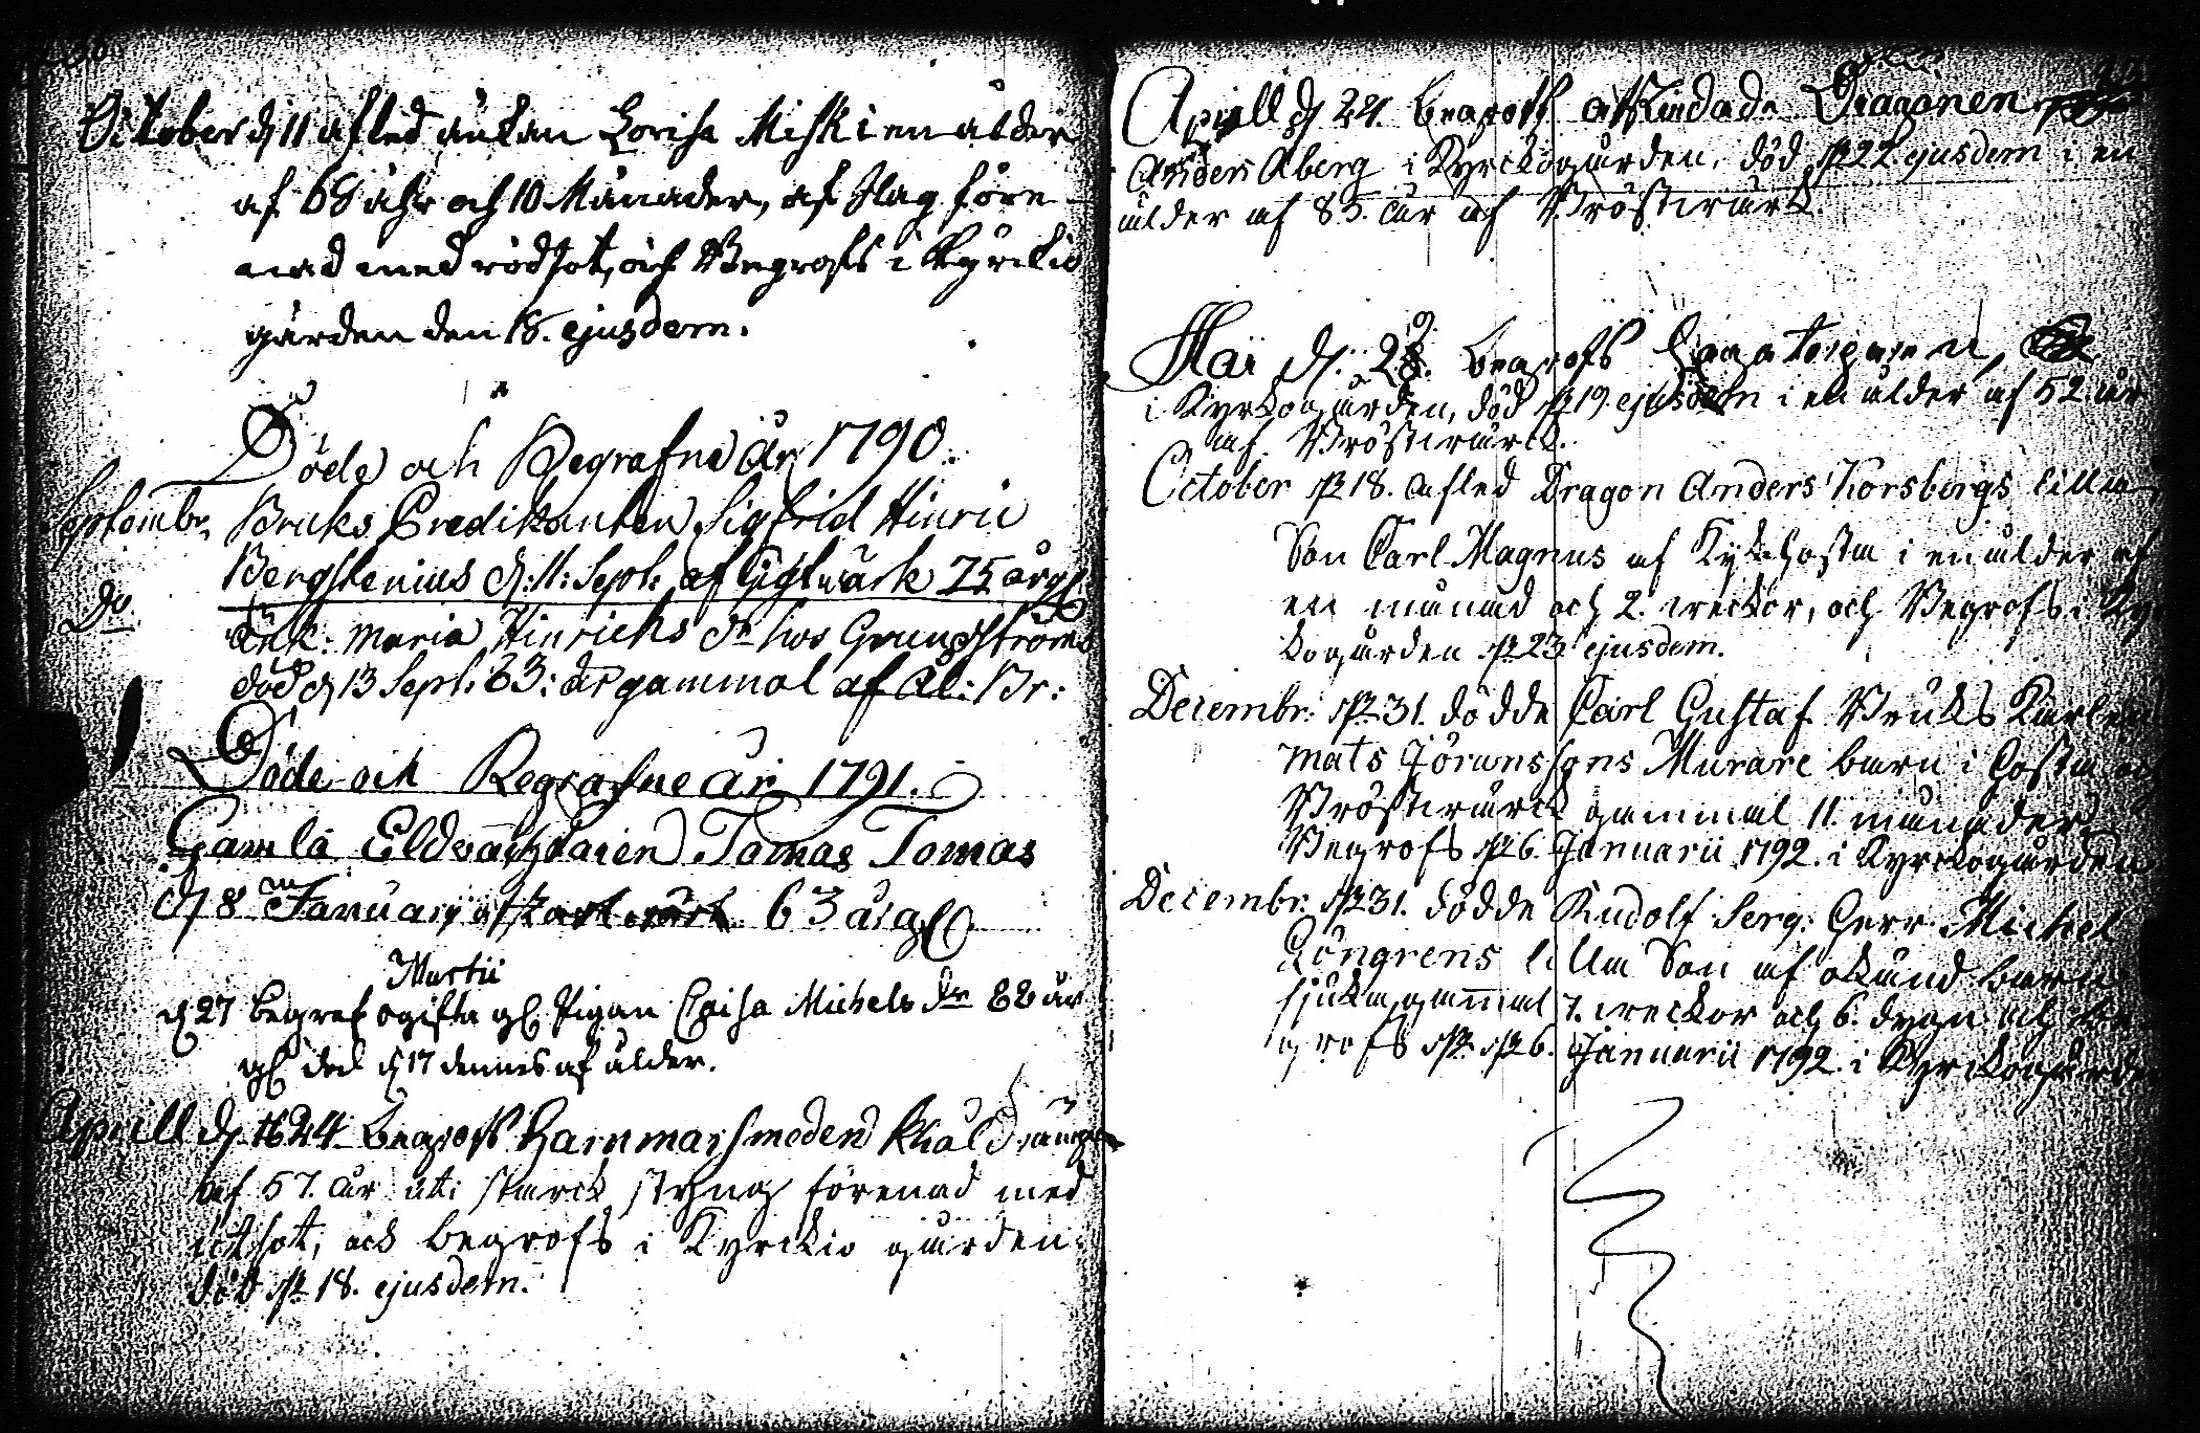 October d 11 afled änkan Lovisa Misk i en ålder
af 68 åhr och 10 Månader, af Slag före-
nad med rödsot, och Begrofs i Kyrkio
gården den 18. ejusdem.
Döde och Begrafne År 1790.
Septembr. Bruks Predikanten Sigfrid Hinric
Bergstenius d: 11: Sept: af 75 årg
Do. Enk: Maria Hinrichs dr hos Grundströms
död d 13 Sept: 63: år gammal af Ål: Br:
Döde och Begrafne År 1791.
Gamla Tomas Tomas
d 8 Januarij 63 år gl
Martii
d 27 begrofs ogifta gl Pigan Caisa Michels dr 88 år
gl död d 17 dennes af ålder.
Aprill d. 24 begrofs Hammarsmeden
af 57. år uti starck styng förenad med
och begrofs i Kyrckio gården
död d 18. ejusdem.
Aprill d 24. begrofs afskiedade Dragonen
Anders Åberg i Kyrckogården, död d 22. ejusdem i en
ålder af 85. år af Bröstwärk.
Maï d. 28. begrofs
i Kyrkogården, död d 19. ejusdem i en ålder af 52 år
af Bröstwärck.
October d 18. afled Dragon Anders Korsbergs lilla
Son Carl Magnus af Kikhosta i en ålder af
en månad och 2. weckor, och Begrofs i Kyr
kogården d 23 ejusdem.
Decembr: d 31. dödde Carl Gustaf Bruks Karlen
Mats Jöranssons Murare barn i Hosta och
Bröstwärck gammal 11. månader
Begrofs d 6. Januarii 1792. i Kyrckogården
Decembr: d 31. dödde Rudolf Serg: Herr Michel
Löngrens lilla Son af okänd barn
sjuka, gammal 7. weckor och 6. dygn och be-
grofs d 6. Januarii 1792. i Kyrckogården